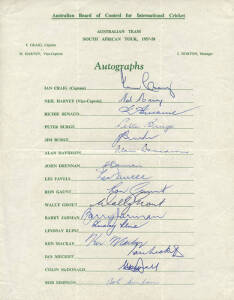 Australian Board of Control for International Cricket
AUSTRALIAN TEAM
SOUTH AFRICAN TOUR, 1957-58
I. CRAIG, Captain
N. HARVEY, Vice-Captain
J. NORTON, Manager
Autographs
IAN CRAIG (Captain)
NEIL HARVEY (Vice-Captain)
RICHIE BENAUD
PETER BURGE
JIM BURKE
ALAN DAVIDSON
JOHN DRENNAN
LES FAVELL
RON GAUNT
WALLY GROUT
BARRY JARMAN
LINDSAY KLINE
KEN MACKAY
IAN MECKIFF
COLIN McDONALD
BOB SIMPSON